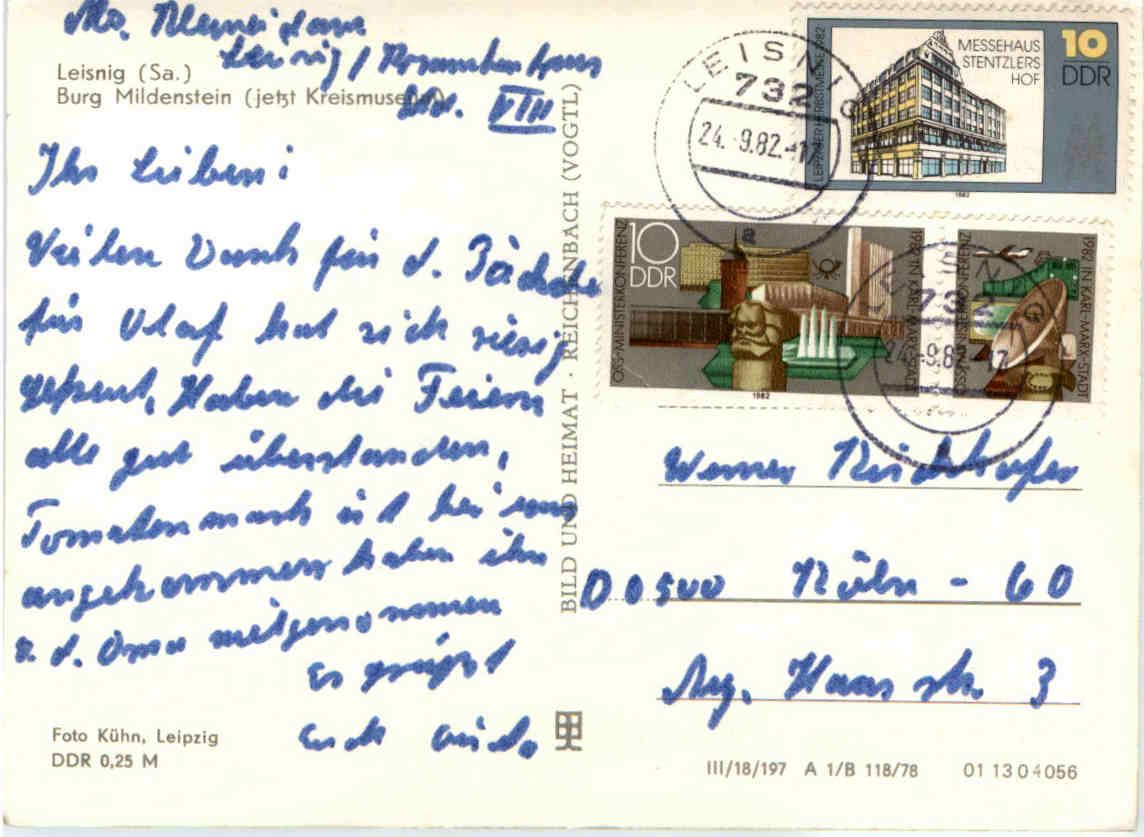 Leisnig (Sa.)
Burg Mildenstein (jetzt Kreismuseum)
Leisnig /
VIII
Ihr Lieben!
Vielen Dank für d. Päckchen
für Olaf hat sich riesig
gefreut. Haben die Feiern
alle gut überstanden,
Tomatenmark ist bei uns
angekommen haben ihn
z. d. Oma mitgenommen
Es grüßt
Euch
Foto Kühn, Leipzig
DDR 0,25 M
BILD UND HEIMAT · REICHENBACH (VOGTL)
LEISNIG
732
24.-9.82.-17
LEIPZIGER HERBSTMESSE 1982
MESSEHAUS
STENTZLERS
HOF
10
DDR
10
DDR
OSS-MINISTERKONFERENZ
1982 IN KARL-MARX-STADT
1982
OSS-MINISTERKONFERENZ
1982 IN KARL-MARX-STADT
732
-9.82.-17
Werner
D 0500 Köln - 60
Haas str. 3
III/18/197 A 1/B 118/78 01 13 0 4 056